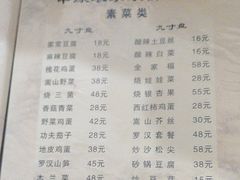 素菜类
九寸盘
家常豆腐 38元
麻辣豆腐 18元
槐花鸡蛋 38元
嵩山野菜 38元
烧三菌 48元
香菇青菜 28元
野菜鸡蛋 42元
功夫茄子 28元
地皮鸡蛋 38元
罗汉山笋 45元
木兰菜 48元
九寸盘
酸辣土豆丝 16元
酸辣白菜 16元
全家福 58元
烧娃娃菜 28元
烧银杏果 55元
西红柿鸡蛋 28元
嵩山芥丝 30元
罗汉套餐 58元
炒沙松尖 58元
砂锅豆腐 38元